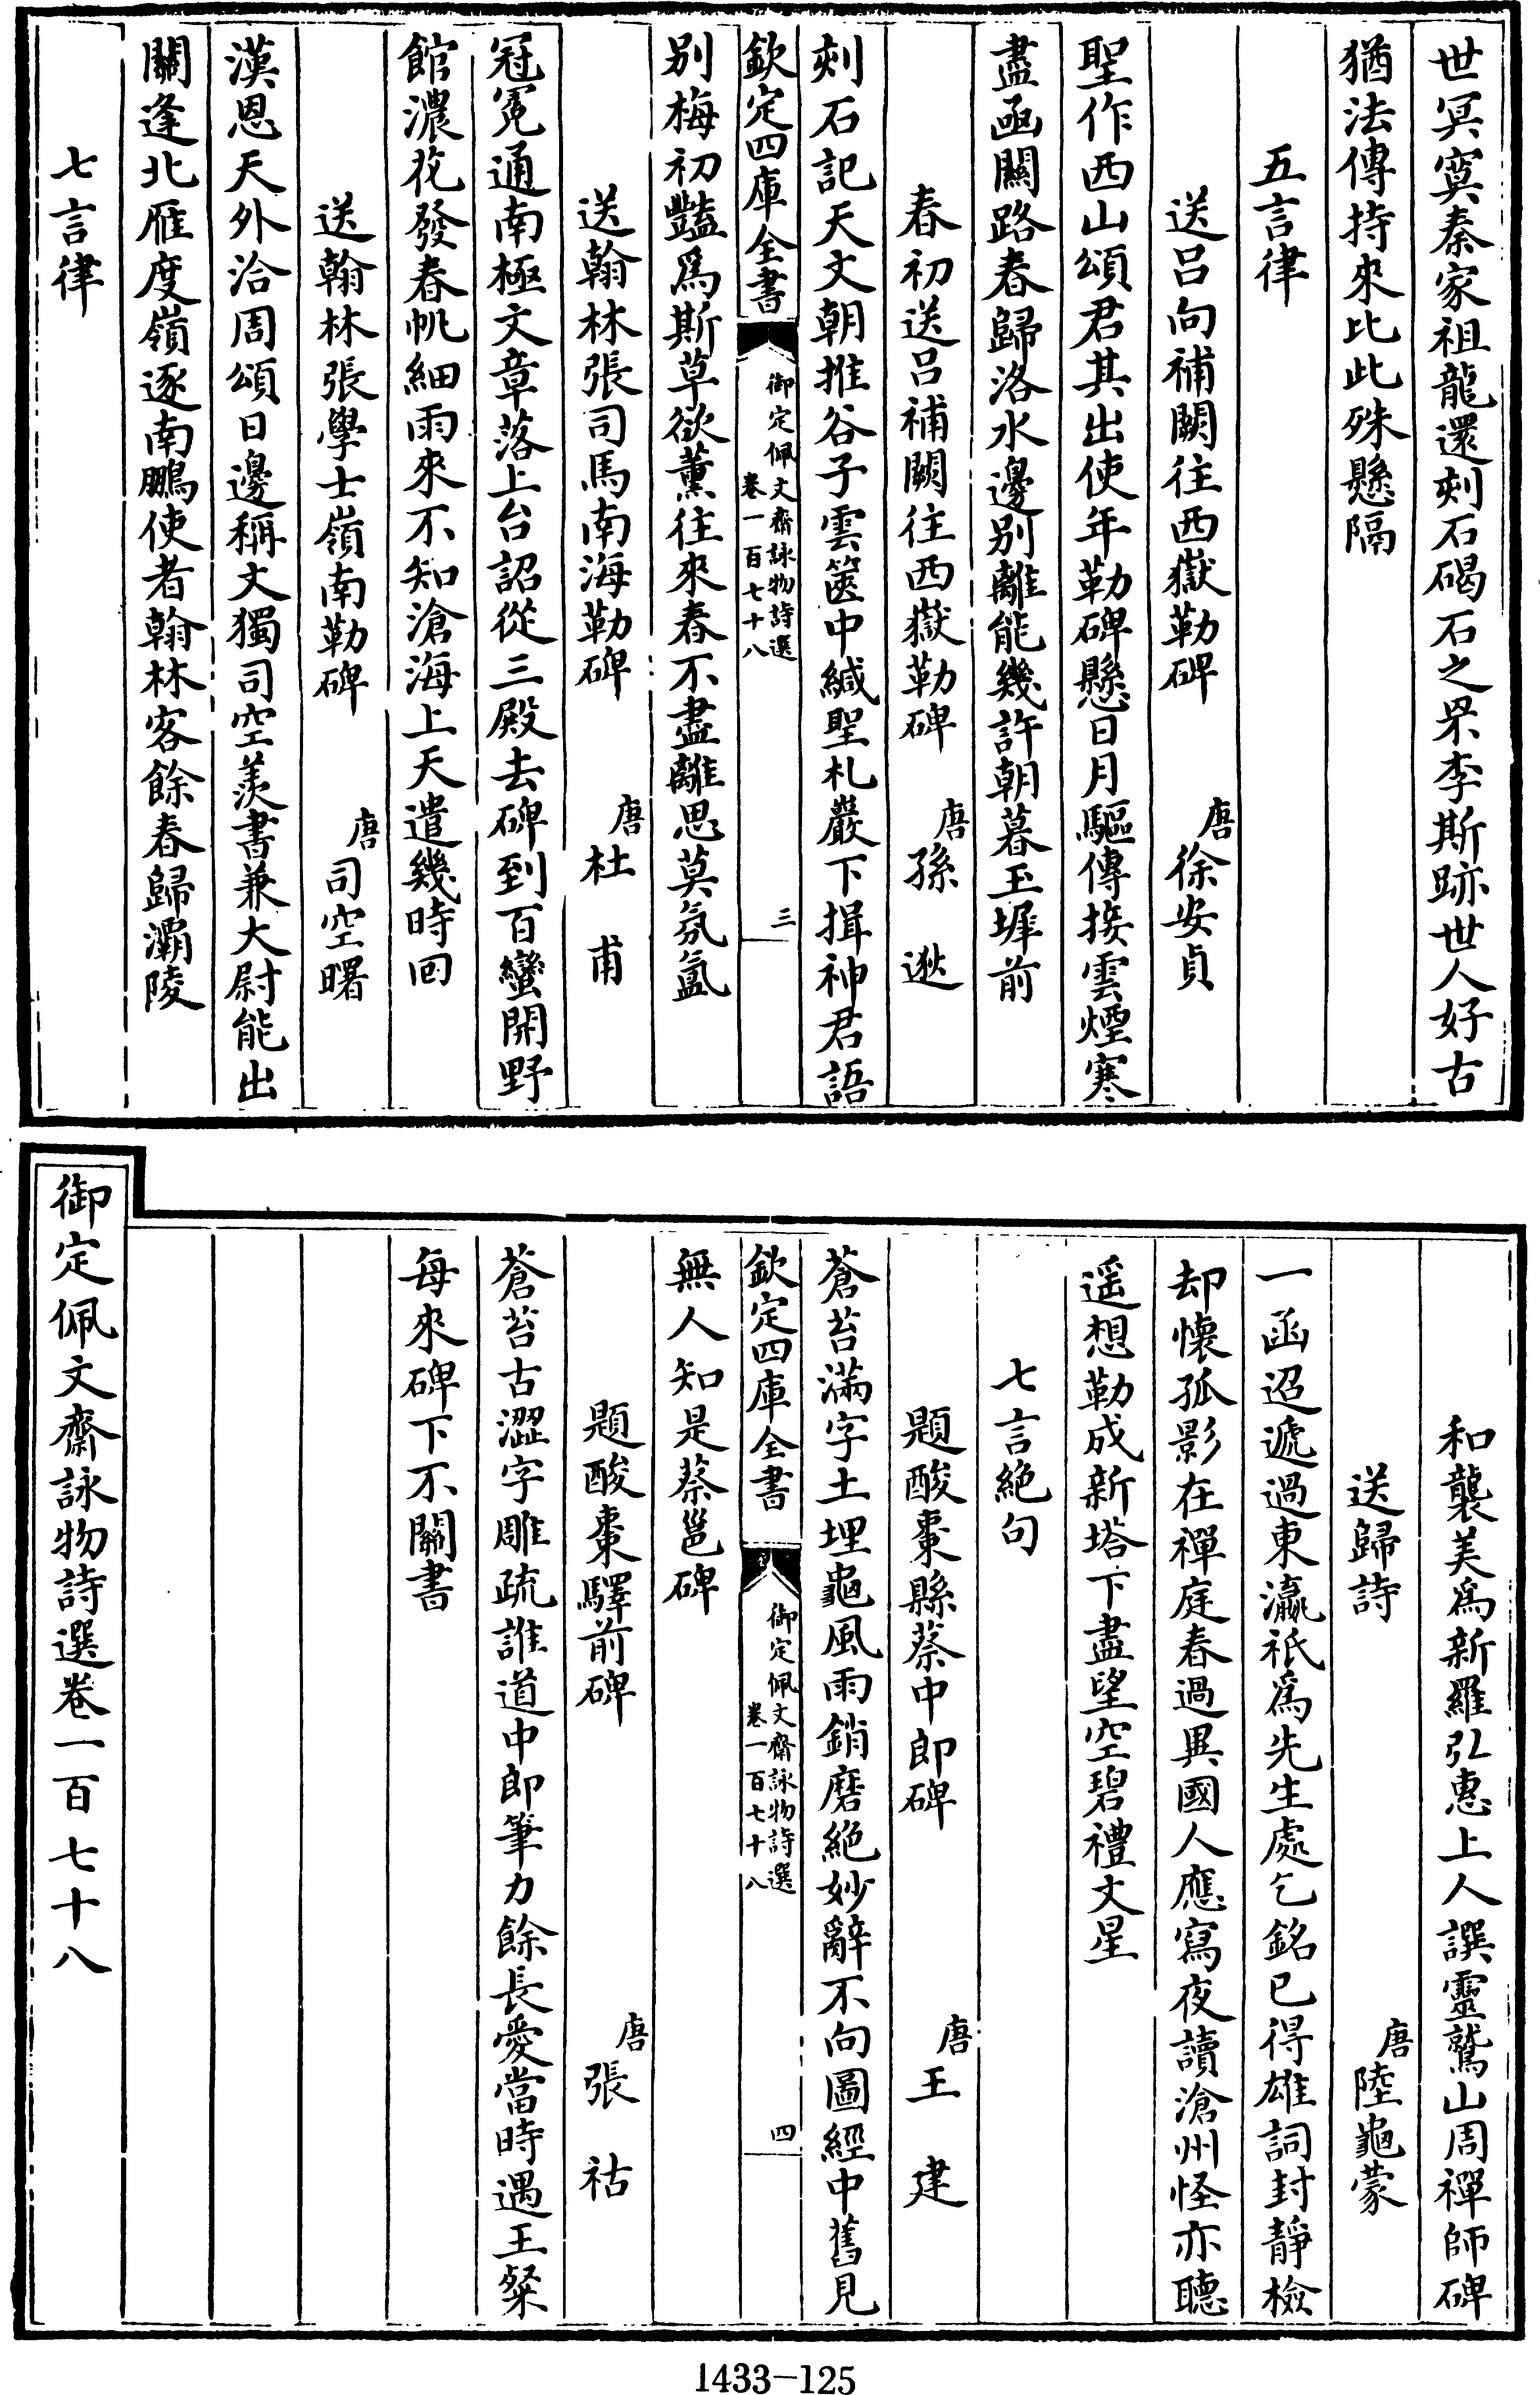 世冥寞秦家祖龍還刻石碣石之罘李斯跡世人好古
猶法傳持來比此殊懸隔
五言律
送呂向補闕往西嶽勒碑　唐徐安貞
聖作西山頌君其出使年勒碑懸日月驅傳接雲煙寒
盡函關路春歸洛水邊别離能幾許朝暮玉墀前
春初送呂補闕往西嶽勒碑　唐孫逖
刻石記天文朝推谷子雲篋中緘聖札巖下揖神君語
欽定四庫全書　御定佩文齋詠物詩選　卷一百七十八　三
别梅初豔爲斯草欲薰往來春不盡離思莫氛氲
送翰林張司馬南海勒碑　唐杜甫
冠冕通南極文章落上台詔從三殿去碑到百蠻開野
館濃花發春帆細雨來不知滄海上天遣幾時回
送翰林張學士嶺南勒碑　唐司空曙
漢恩天外洽周頌日邊稱文獨司空羡書兼大尉能出
關逢北雁度嶺逐南鵬使者翰林客餘春歸灞陵
七言律
和襲美爲新羅弘惠上人譔靈鷲山周禪師碑
送歸詩　唐陸龜蒙
一函迢遞過東瀛祇爲先生處乞銘已得雄詞封靜檢
却懷孤影在禪庭春過異國人應寫夜讀滄州怪亦聽
遥想勒成新塔下盡望空碧禮文星
七言絶句
題酸棗縣蔡中郎碑　唐王建
蒼苔滿字土埋龜風雨銷磨絶妙辭不向圖經中舊見
欽定四庫全書　御定佩文齋詠物詩選　卷一百七十八　四
無人知是蔡邕碑
題酸棗驛前碑　唐張祜
蒼苔古澀字雕疏誰道中郎筆力餘長愛當時遇王粲
每來碑下不關書
御定佩文齋詠物詩選卷一百七十八
1433-125